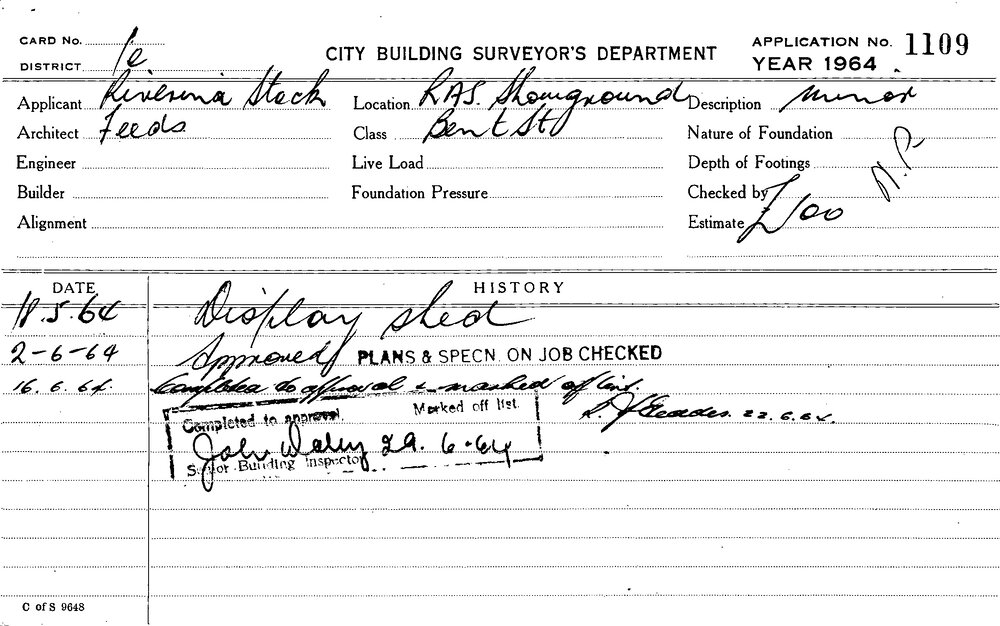 CARD No.
DISTRICT 1e
CITY BUILDING SURVEYOR'S DEPARTMENT
APPLICATION No. 1109
YEAR 1964
Applicant Riverina Stock
Location R.A.S. Showground
Description minor
Architect Feeds
Class Bent St
Nature of Foundation
Engineer
Live Load
Depth of Footings
N.P.
Builder
Foundation Pressure
Checked by
Alignment
Estimate £100
DATE
HISTORY
18.5.64 Display shed
2-6-64 Approved PLANS & SPECN. ON JOB CHECKED
16.6.64. Completed to approval & marked off list.
22.6.64.
Completed to approval. Marked off list.
John 29.6.64
Senior Building Inspector
C of S 9648